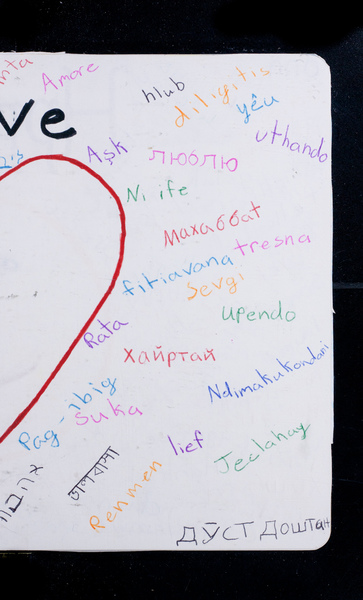 Amore
hlub
diligitis
yêu
ve
uthando
Aşk
люблю
Ni ife
Махаббат
tresna
fitiavana
Sevgi
upendo
Rata
Хайртай
Ndimakukondani
Pag-ibig
suka
lief
Jeclahay
אהבה
ভালবাসা
Renmen
дӯст доштан